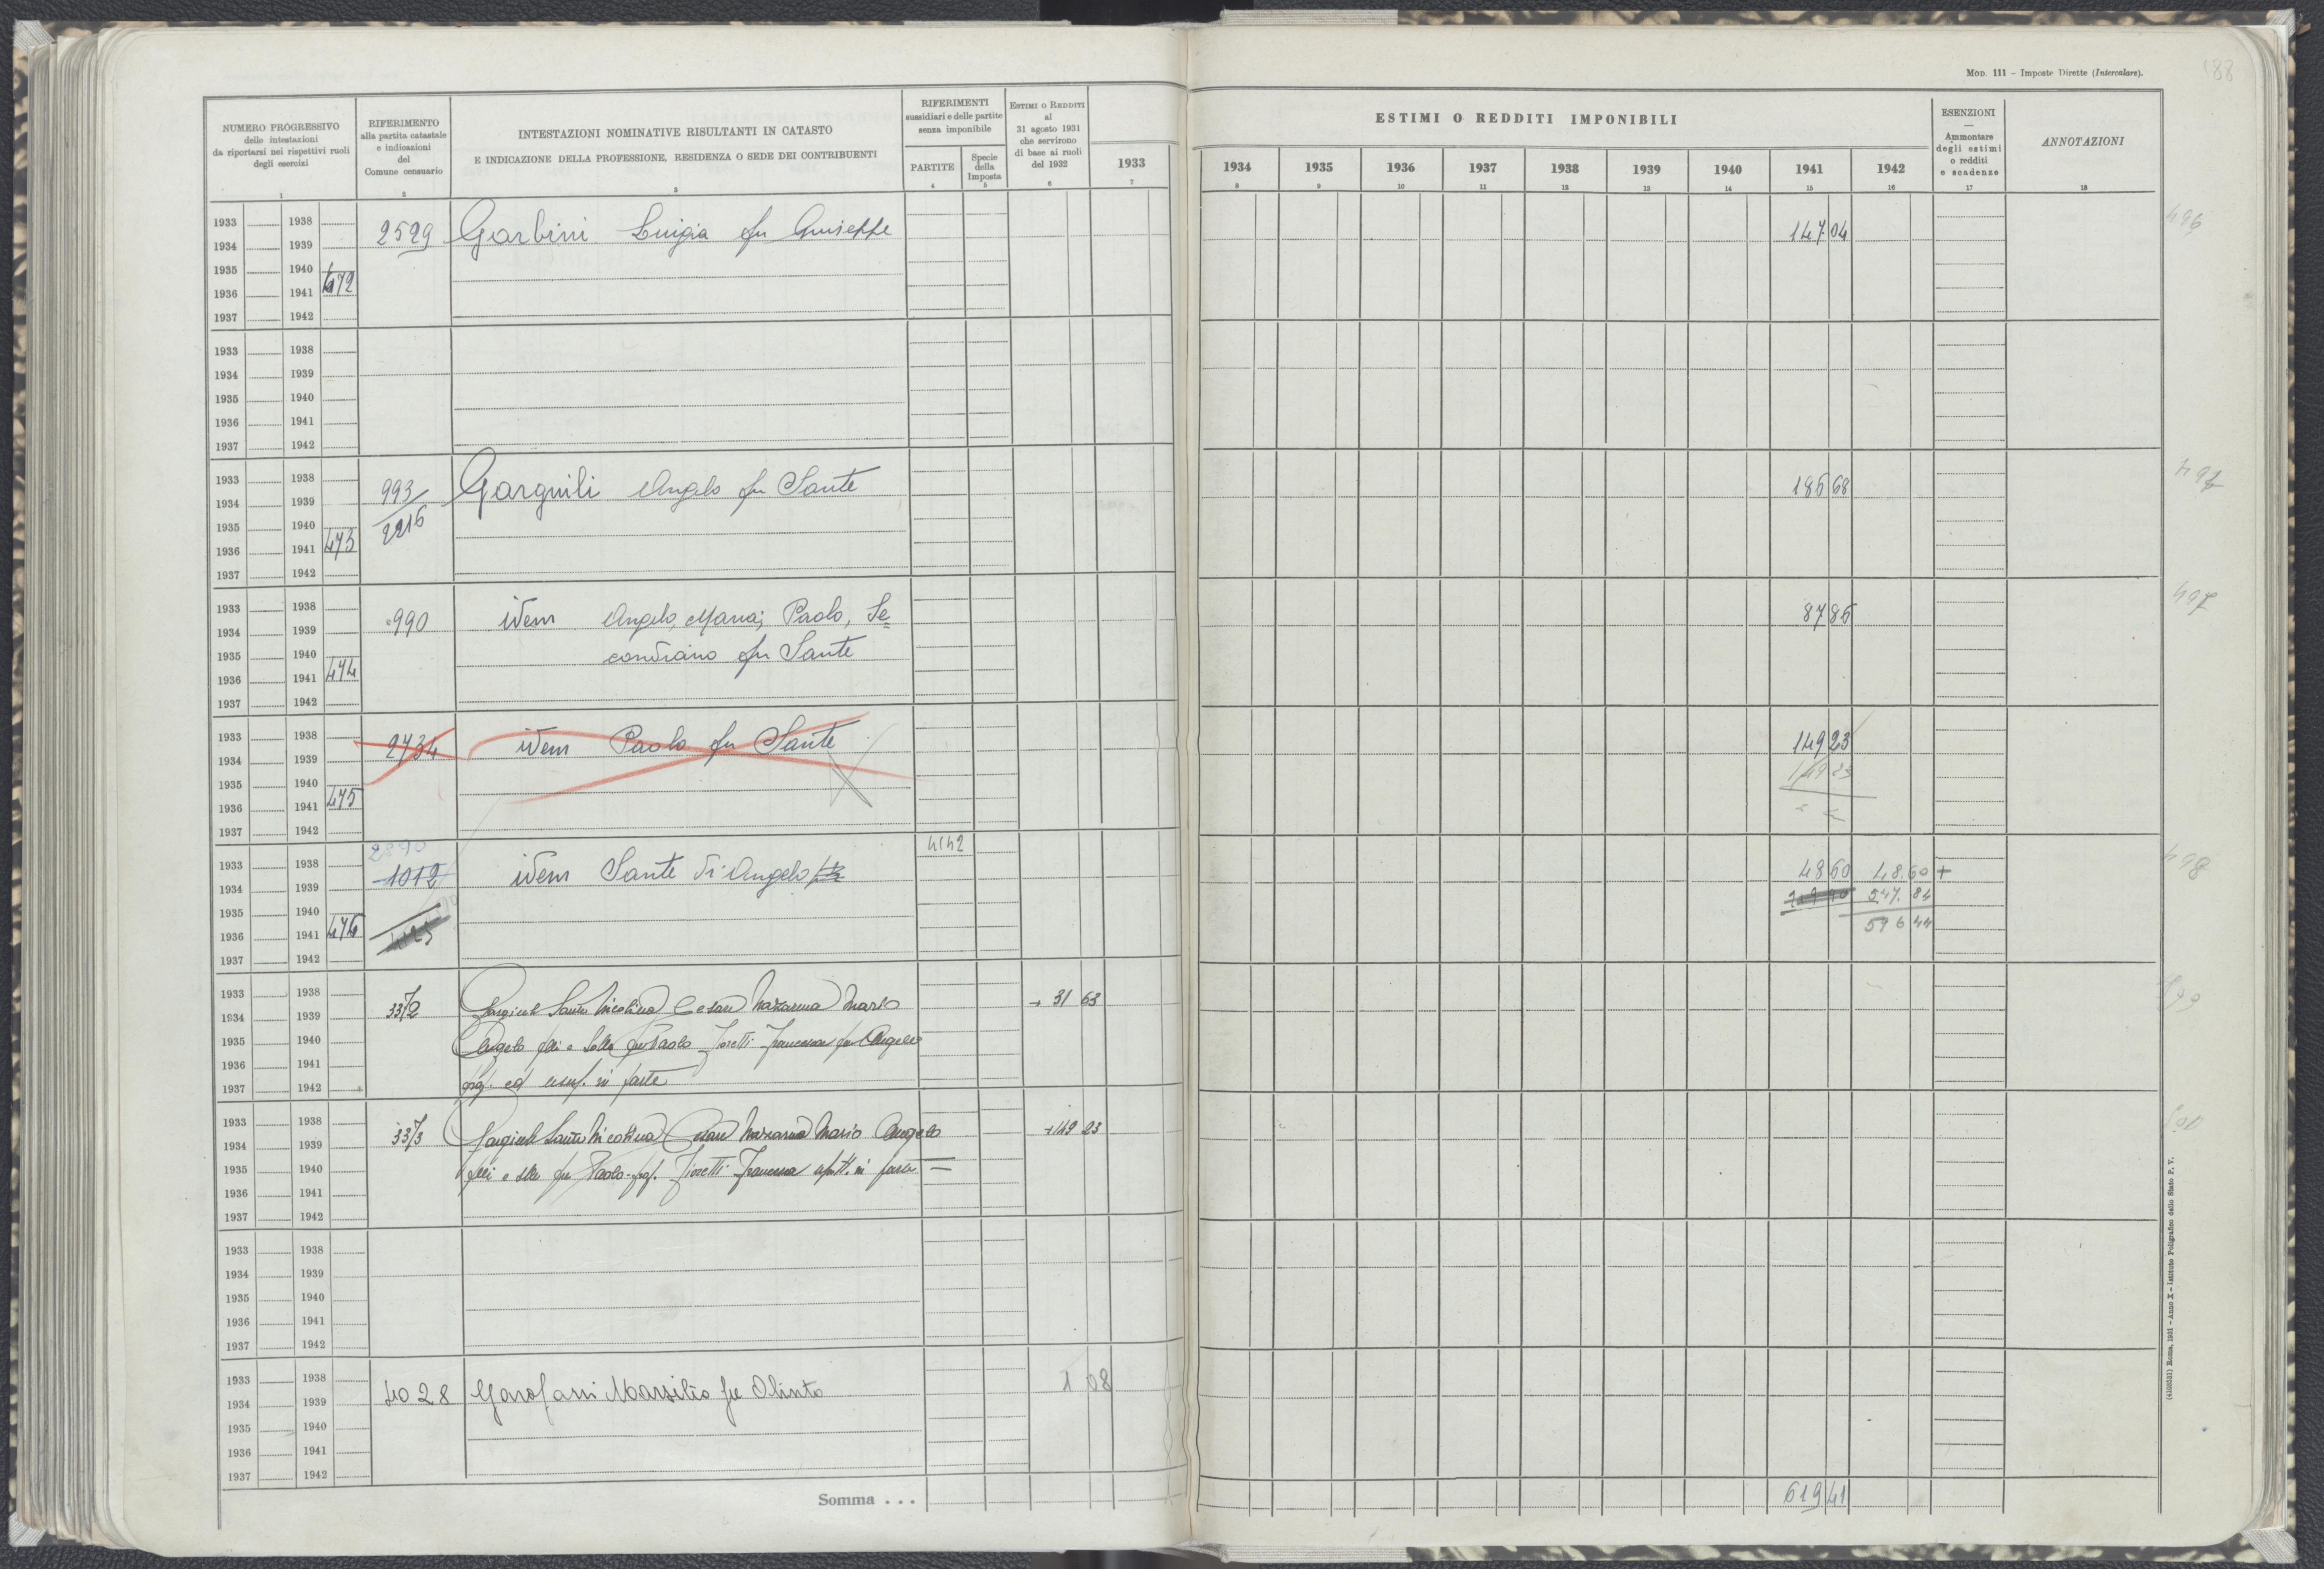 MOD. 111 – Imposte Dirette (Intercalare).
188
NUMERO PROGRESSIVO
delle intestazioni
da riportarsi nei rispettivi ruoli
degli esercizi
1
RIFERIMENTO
alla partita catastale
e indicazioni
del
Comune censuario
2
INTESTAZIONI NOMINATIVE RISULTANTI IN CATASTO
E INDICAZIONE DELLA PROFESSIONE, RESIDENZA O SEDE DEI CONTRIBUENTI
3
RIFERIMENTI
sussidiari e delle partite
senza imponibile
PARTITE
4
Specie
della
Imposta
5
ESTIMI O REDDITI
al
31 agosto 1931
che servirono
di base ai ruoli
del 1932
6
ESTIMI O REDDITI IMPONIBILI
1933 1934 1935 1936 1937 1938 1939 1940 1941 1942
7 8 9 10 11 12 13 14 15 16
ESENZIONI
—
Ammontare
degli estimi
o redditi
e scadenze
17
ANNOTAZIONI
18
1933 1938 2529 Garbini Luigia fu Giuseppe 147.04 496
1934 1939
1935 1940
1936 1941 472
1937 1942
1933 1938
1934 1939
1935 1940
1936 1941
1937 1942
1933 1938 993 Gargiuli Angelo fu Sante 186 68 497
1934 1939
1935 1940 2216
1936 1941 473
1937 1942
1933 1938 990 idem Angelo, Maria, Paolo, Se= 87 86 497
1934 1939
1935 1940 condiano fu Sante
1936 1941 474
1937 1942
1933 1938 2734 idem Paolo fu Sante 149 23
1934 1939
1935 1940 149 23
1936 1941 475
1937 1942
2890 4142
1933 1938 1012 idem Sante di Angelo 48 60 48.60 + 498
1934 1939
1935 1940 547.84
1936 1941 476 596 44
1937 1942
1933 1938 3372 Santo Nicolina Cesare Nazarena Mario + 31 63 499
1934 1939
1935 1940 Angelo flli e fu Paolo Francesca fu Angelo
1936 1941
1937 1942 ed usuf. in parte
1933 1938 3373 Santo Nicolina Cesare Nazarena Mario Angelo + 149 23 500
1934 1939
1935 1940 flli e fu Paolo Francesca in parte —
1936 1941
1937 1942
1933 1938
1934 1939
1935 1940
1936 1941
1937 1942
1933 1938 4028 Garofani Marsilio fu Olinto 1 08
1934 1939
1935 1940
1936 1941
1937 1942
Somma . . . 619 41
(4100531) Roma, 1931 – Anno X – Istituto Poligrafico dello Stato P. V.